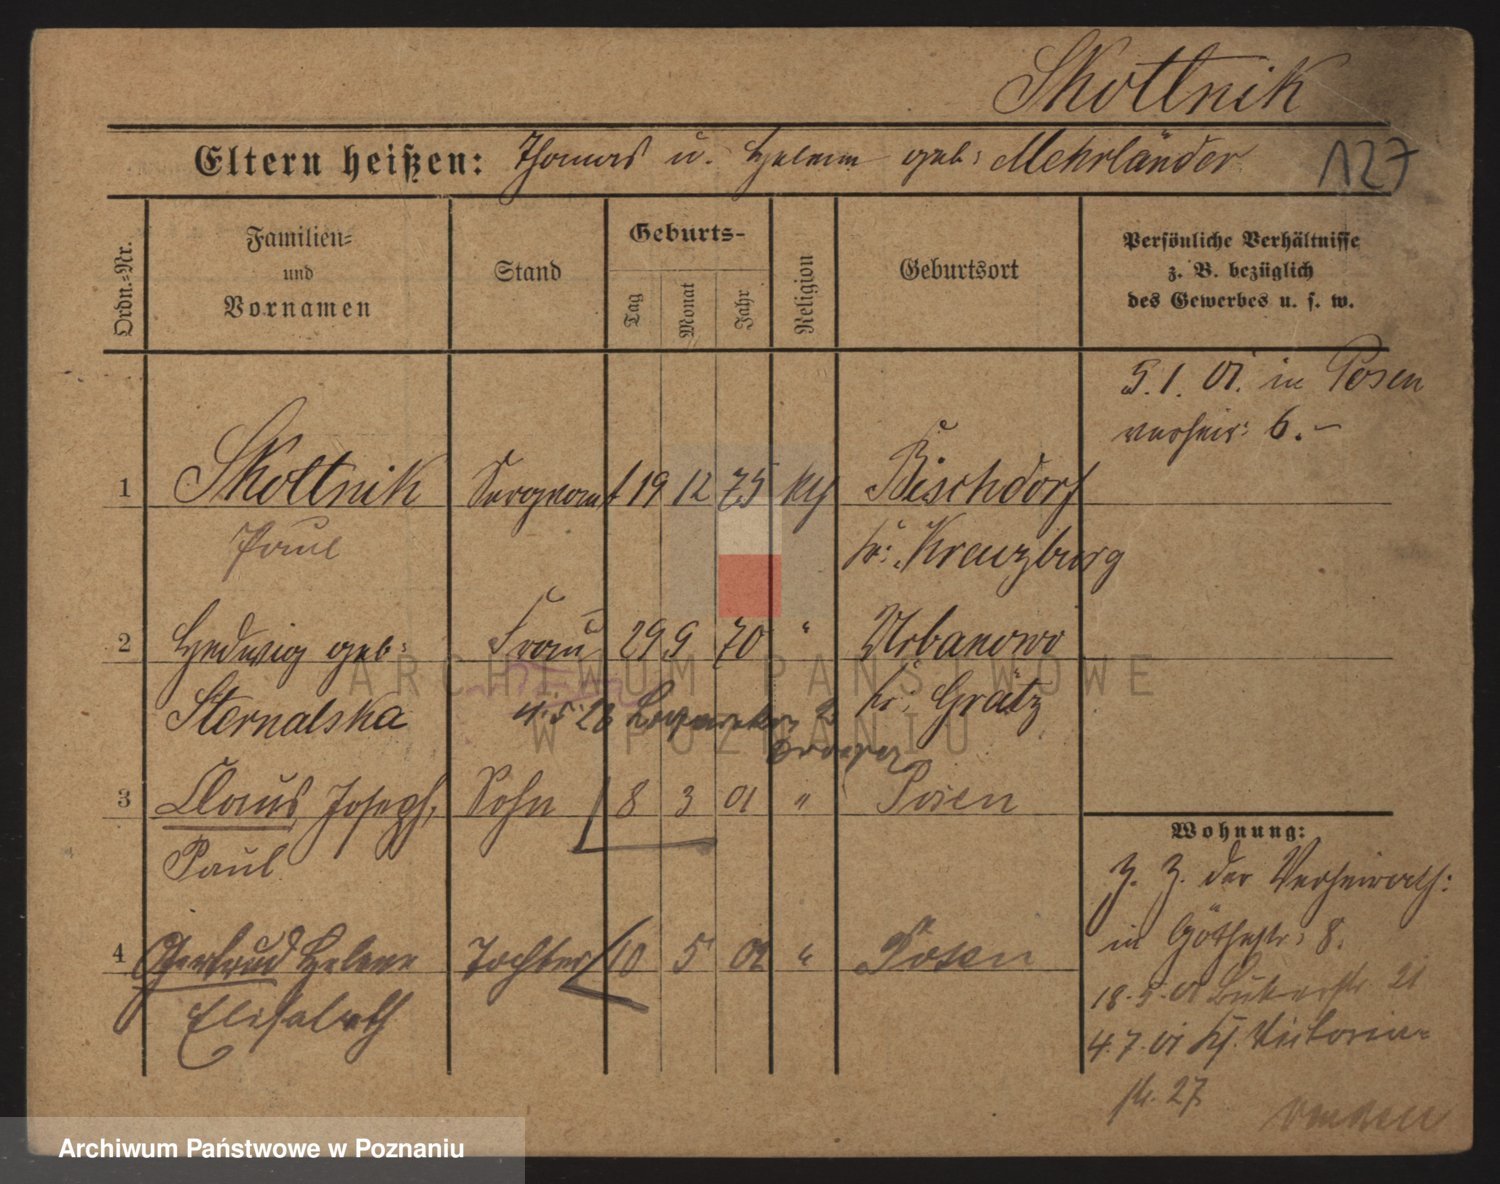 Skottnik
Eltern heißen: Thomas u. Helene geb: Mehrländer
127
Ordn.=Nr.
Familien=
und
Vornamen
Stand
Geburts-
Tag
Monat
Jahr
Religion
Geburtsort
Persönliche Verhältnisse
z. B. bezüglich
des Gewerbes u. s. w.
5. 1. 01. in Posen
verheir: 6.-
1 Skottnik Sergeant 19 12 75 kth Bischdorf
Paul Kr: Kreuzburg
2 Hedwig geb: Frau 29 9 70 " Urbanowo
Sternalska Kr: Grätz
4. 5. 23
3 Claus Joseph, Sohn 8 3 01 " Posen
Paul
4 Gertrud Helene Tochter 10 5 02 " Posen
Elisabeth
Wohnung:
Z. Z. der Verheirath:
in Göthestr: 8.
18. 5. 01 21
4. 7. 01 Victoria=
str. 27
ARCHIWUM PAŃSTWOWE
W POZNANIU
Archiwum Państwowe w Poznaniu